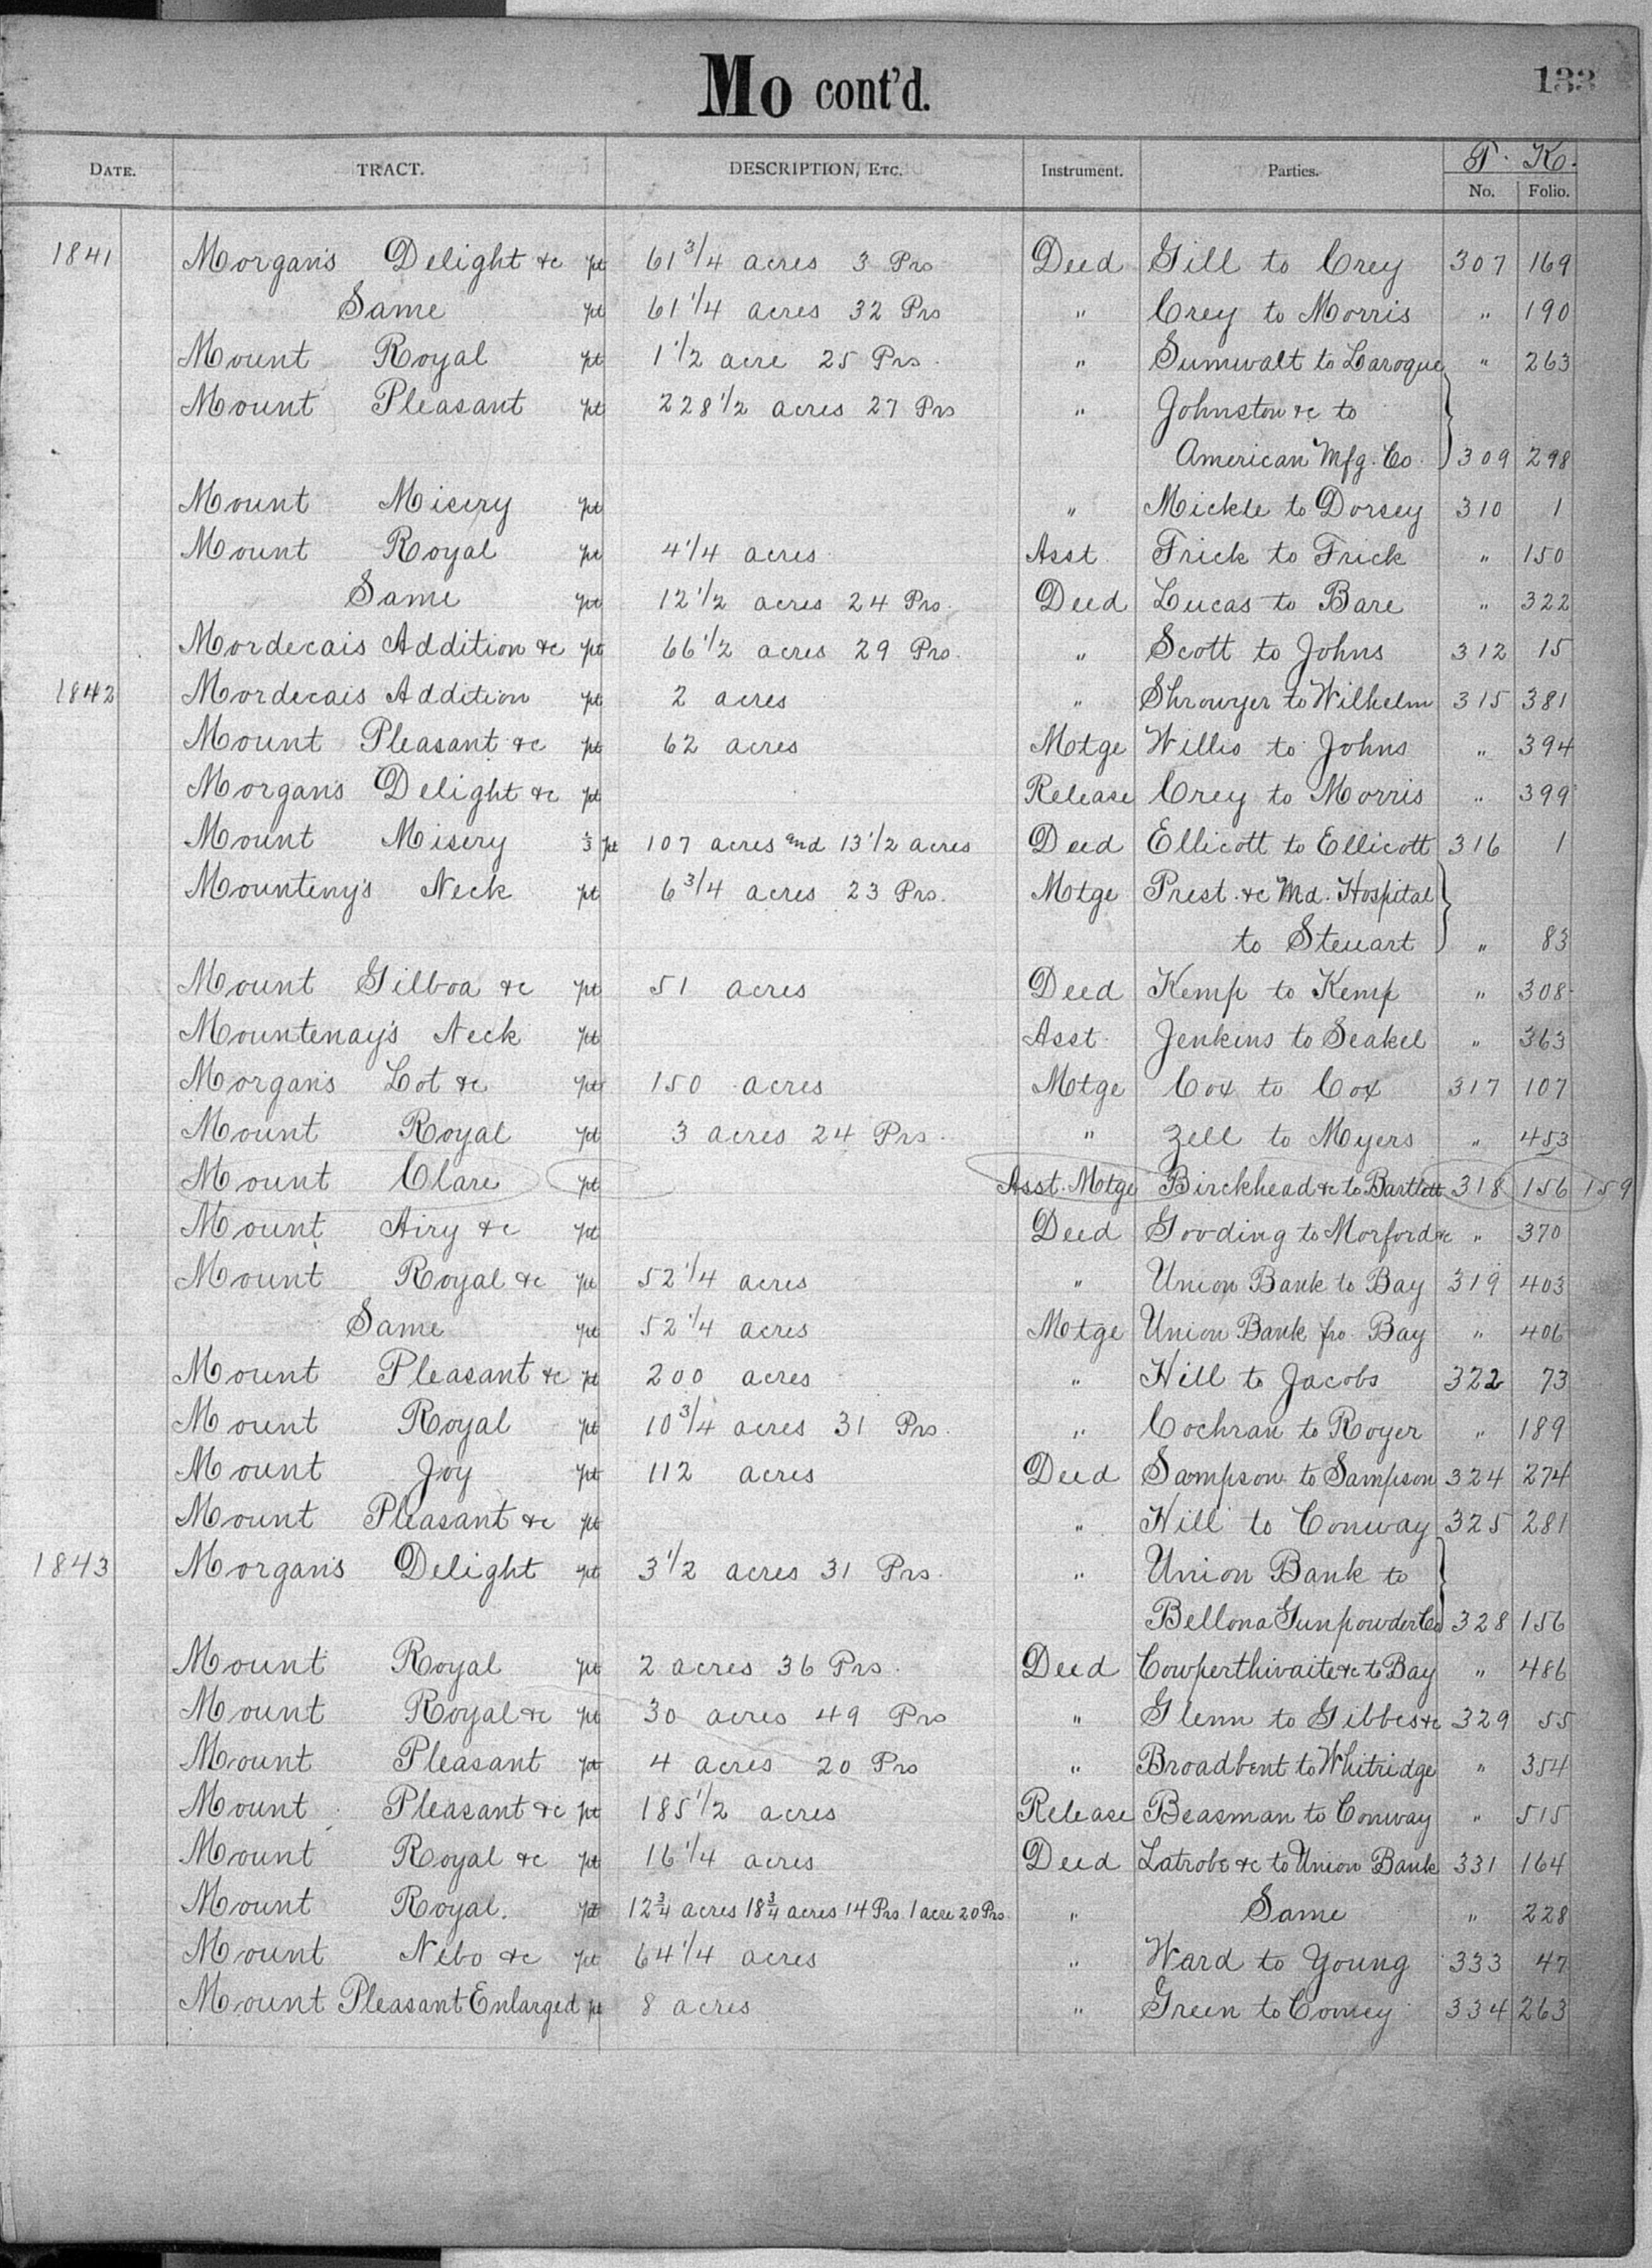 Mo cont'd.
133
DATE. TRACT. DESCRIPTION, ETC. Instrument. Parties. T. K.
No. Folio.
1841 Morgan's Delight &c pt 61 3/4 acres 3 Prs Deed Gill to Crey 307 169
Same pt 61 1/4 acres 32 Prs " Crey to Morris " 190
Mount Royal pt 1 1/2 acre 25 Prs. " Sumwalt to Laroque " 263
Mount Pleasant pt 228 1/2 acres 27 Prs " Johnston &c to
American Mfg. Co. 309 298
Mount Misery pt " Mickle to Dorsey 310 1
Mount Royal pt 4 1/4 acres Asst. Frick to Frick " 150
Same pt 12 1/2 acres 24 Prs. Deed Lucas to Bare " 322
Mordecais Addition &c pt 66 1/2 acres 29 Prs. " Scott to Johns 312 15
1842 Mordecais Addition pt 2 acres " Shrowyer to Wilhelm 315 381
Mount Pleasant &c pt 62 acres Motge Willis to Johns " 394
Morgan's Delight &c pt Release Crey to Morris " 399
Mount Misery 1/3 pt 107 acres and 13 1/2 acres Deed Ellicott to Ellicott 316 1
Mounteny's Neck pt 6 3/4 acres 23 Prs. Motge Prest. &c Md. Hospital
to Steuart " 83
Mount Gilboa &c pt 51 acres Deed Kemp to Kemp " 308
Mountenay's Neck pt Asst. Jenkins to Seakel " 363
Morgan's Lot &c pt 150 acres Motge Cox to Cox 317 107
Mount Royal pt 3 acres 24 Prs. " Zell to Myers " 453
Mount Clare pt Asst. Motge Birckhead &c to Bartlett 318 156 159
Mount Airy &c pt Deed Gooding to Morford &c " 370
Mount Royal &c pt 52 1/4 acres " Union Bank to Bay 319 403
Same pt 52 1/4 acres Motge Union Bank fro. Bay " 406
Mount Pleasant &c pt 200 acres " Hill to Jacobs 322 73
Mount Royal pt 10 3/4 acres 31 Prs. " Cochran to Royer " 189
Mount Joy pt 112 acres Deed Sampson to Sampson 324 274
Mount Pleasant &c pt " Hill to Conway 325 281
1843 Morgan's Delight pt 3 1/2 acres 31 Prs. " Union Bank to
Bellona Gunpowder Co 328 156
Mount Royal pt 2 acres 36 Prs. Deed Cowperthwaite &c to Bay " 486
Mount Royal &c pt 30 acres 49 Prs " Glenn to Gibbes &c 329 55
Mount Pleasant pt 4 acres 20 Prs " Broadbent to Whitridge " 354
Mount Pleasant &c pt 185 1/2 acres Release Beasman to Conway " 515
Mount Royal &c pt 16 1/4 acres Deed Latrobe &c to Union Bank 331 164
Mount Royal. pt 12 3/4 acres 18 3/4 acres 14 Prs. 1 acre 20 Prs. " Same " 228
Mount Nebo &c pt 64 1/4 acres " Ward to Young 333 47
Mount Pleasant Enlarged pt 8 acres " Green to Comey 334 263